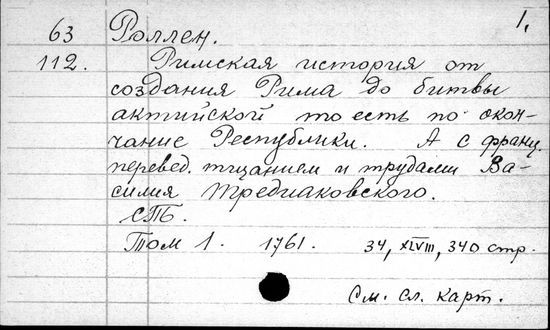 1.
63 Роллен.
112. Римская история от
создания Рима до битвы
актийской то есть по окон-
чание Республики. А с франц.
перевед. тщанием и трудами Ва-
силия Тредиаковского.
СПб.
Том 1. 1761. 34, XLVIII, 340 стр.
См. сл. карт.